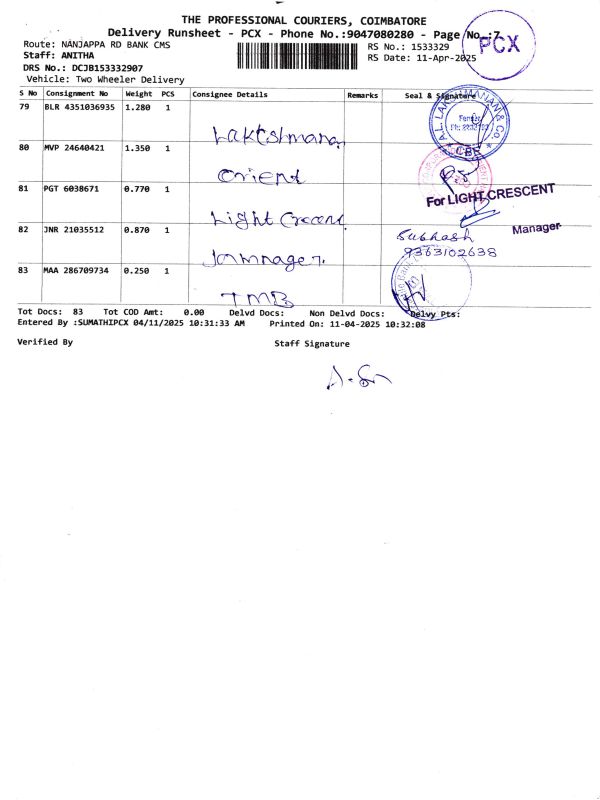 THE PROFESSIONAL COURIERS, COIMBATORE
Delivery Runsheet - PCX - Phone No.:9047080280 - Page No.:7
PCX
Route: NANJAPPA RD BANK CMS
RS No.: 1533329
Staff: ANITHA
RS Date: 11-Apr-2025
DRS No.: DCJB153332907
Vehicle: Two Wheeler Delivery
S No Consignment No Weight PCS Consignee Details Remarks Seal & Signature
79 BLR 4351036935 1.280 1
Lakshmanan
A.L. LAKSHMANAN & Co.
CBE
80 MVP 24640421 1.350 1
Orient
81 PGT 6038671 0.770 1
Light Crecent
For LIGHT CRESCENT
Manager
82 JNR 21035512 0.870 1
Subhash
9363102638
83 MAA 286709734 0.250 1
TMB
Tot Docs: 83 Tot COD Amt: 0.00 Delvd Docs: Non Delvd Docs: Delvy Pts:
Entered By :SUMATHIPCX 04/11/2025 10:31:33 AM Printed On: 11-04-2025 10:32:08
Verified By Staff Signature